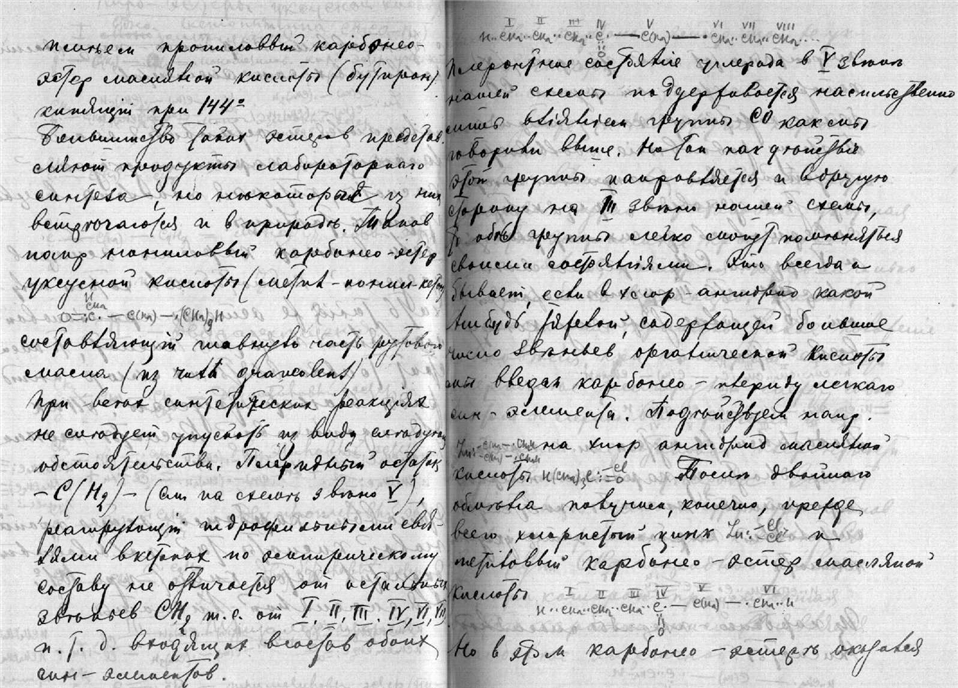 пильем пропиловый карбонео-
эстер масляной кислоты (бутирон)
кипящий при 144°
Большинство таких эстеров представ
ляют продукты лабораторного
синтеза - но некоторые из них
встречаются и в природе. Таков
напр нониловый карбонео-эстер
уксусной кислоты (метил-нонил-кетон
составляющий главную часть рутового
масла (из ruta graveolent)
При всех синтетических реакциях
не следует упускать из виду следующ
обстоятельства. Плеридный остаток
- C(H2) - (см на схеме звено V),
реагирующий гидрофильными свя-
зями вкерная по эмпирическому
составу не отличается от остальных
звеньев CH2 т.е. от I, II, III, IV, VI, VII
и. т. д. входящих в состав обоих
ган-элементов.
I II III IV V VI VII VIII
H··CH2··CH2··CH2··C··—C(H2)—··CH2··CH2··CH2··
O
Плеронтное состояние углерода в V звене
нашей схемы поддерживается насильственно
лишь влиянием группы CO как мы
говорили выше. Но так как действия
этой группы направляется и в другую
сторону на III звено нашей схемы,
то обе группы легко могут поменяться
своими состояниями. Это всегда и
бывает, если в хлор ангидрид какой
нибудь жирной, содержащей большее
число звеньев органической кислоты
мы введем карбонео-плериду легкаго
ган-элемента. Подействуем напр.
на хлор ангидрид масляной
кислоты H(CH2)3C Cl O После двойного
обмена получим, конечно, прежде
всего хлористый цинк Zn Cl Cl и
метиловый карбонео-эстер масляной
кислоты
I II III IV V VI
H··CH2··CH2··CH2··C··—C(H2)—··CH2··H
O
Но в этом карбонео-эстере окажется